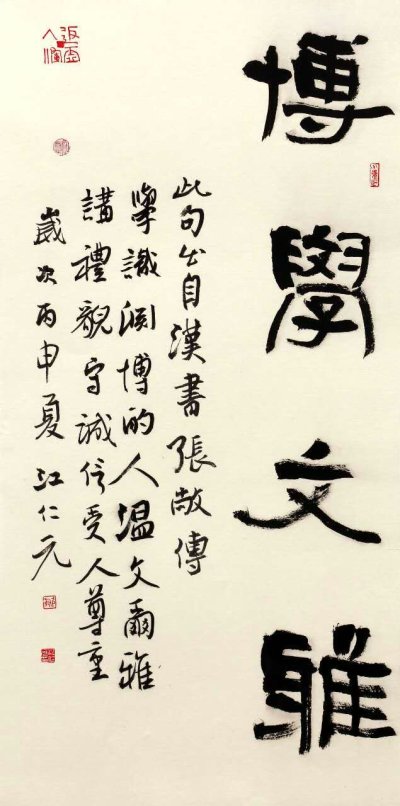 博學文雅
此句出自漢書張敞傳
學識淵博的人溫文爾雅
講禮親守誠信受人尊重
歲次丙申夏江仁元